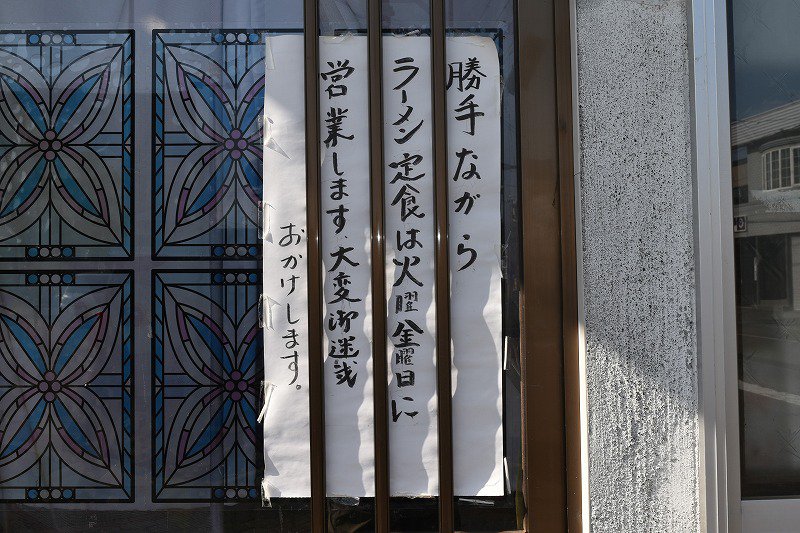 勝手ながら
ラーメン定食は火曜金曜日に
営業します.大変御迷惑
おかけします。